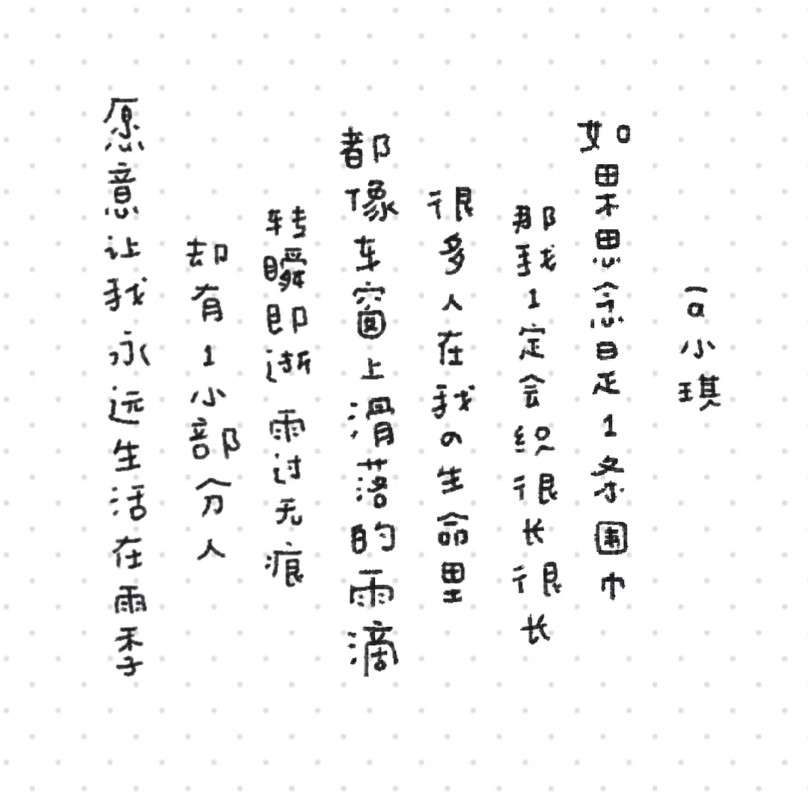 如果思念是1条围巾
那我1定会织很长很长
很多人在我の生命里
都像车窗上滑落的雨滴
转瞬即逝 雨过无痕
却有1小部分人
愿意让我永远生活在雨季